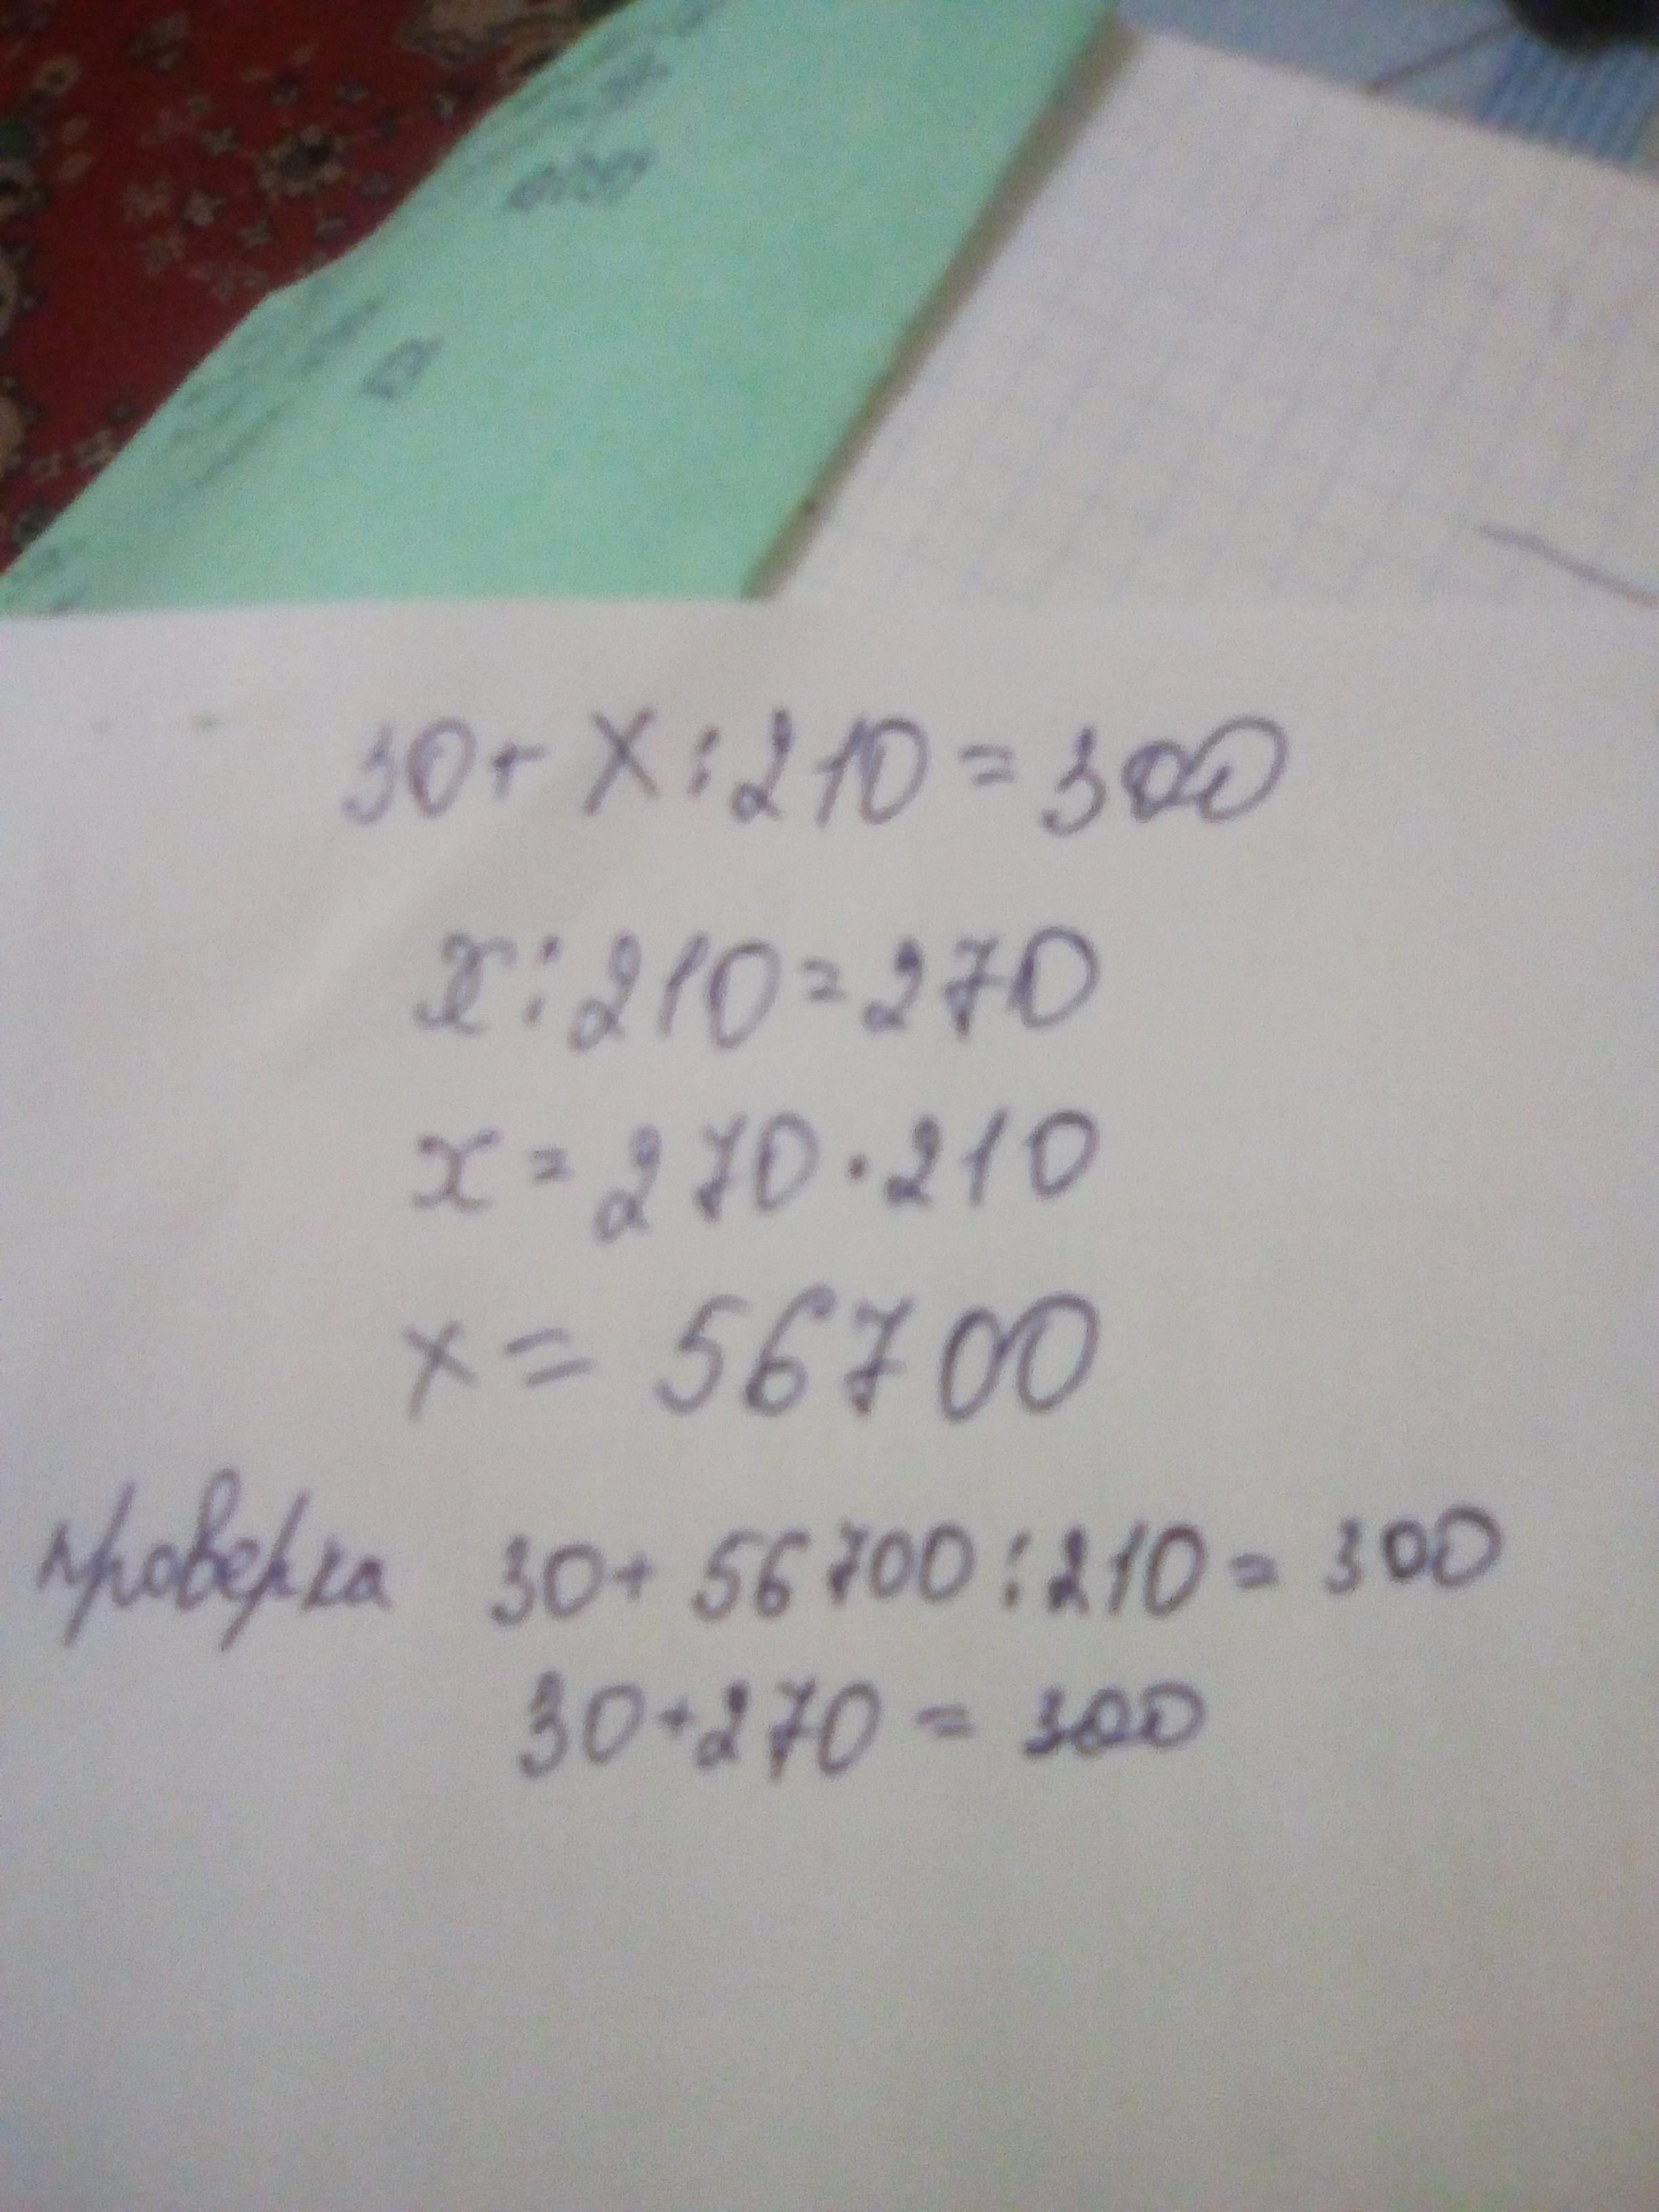 30+ x : 210 = 300
x : 210 = 270
x = 270 · 210
x = 56700
проверка 30+ 56700 : 210 = 300
30+270 = 300